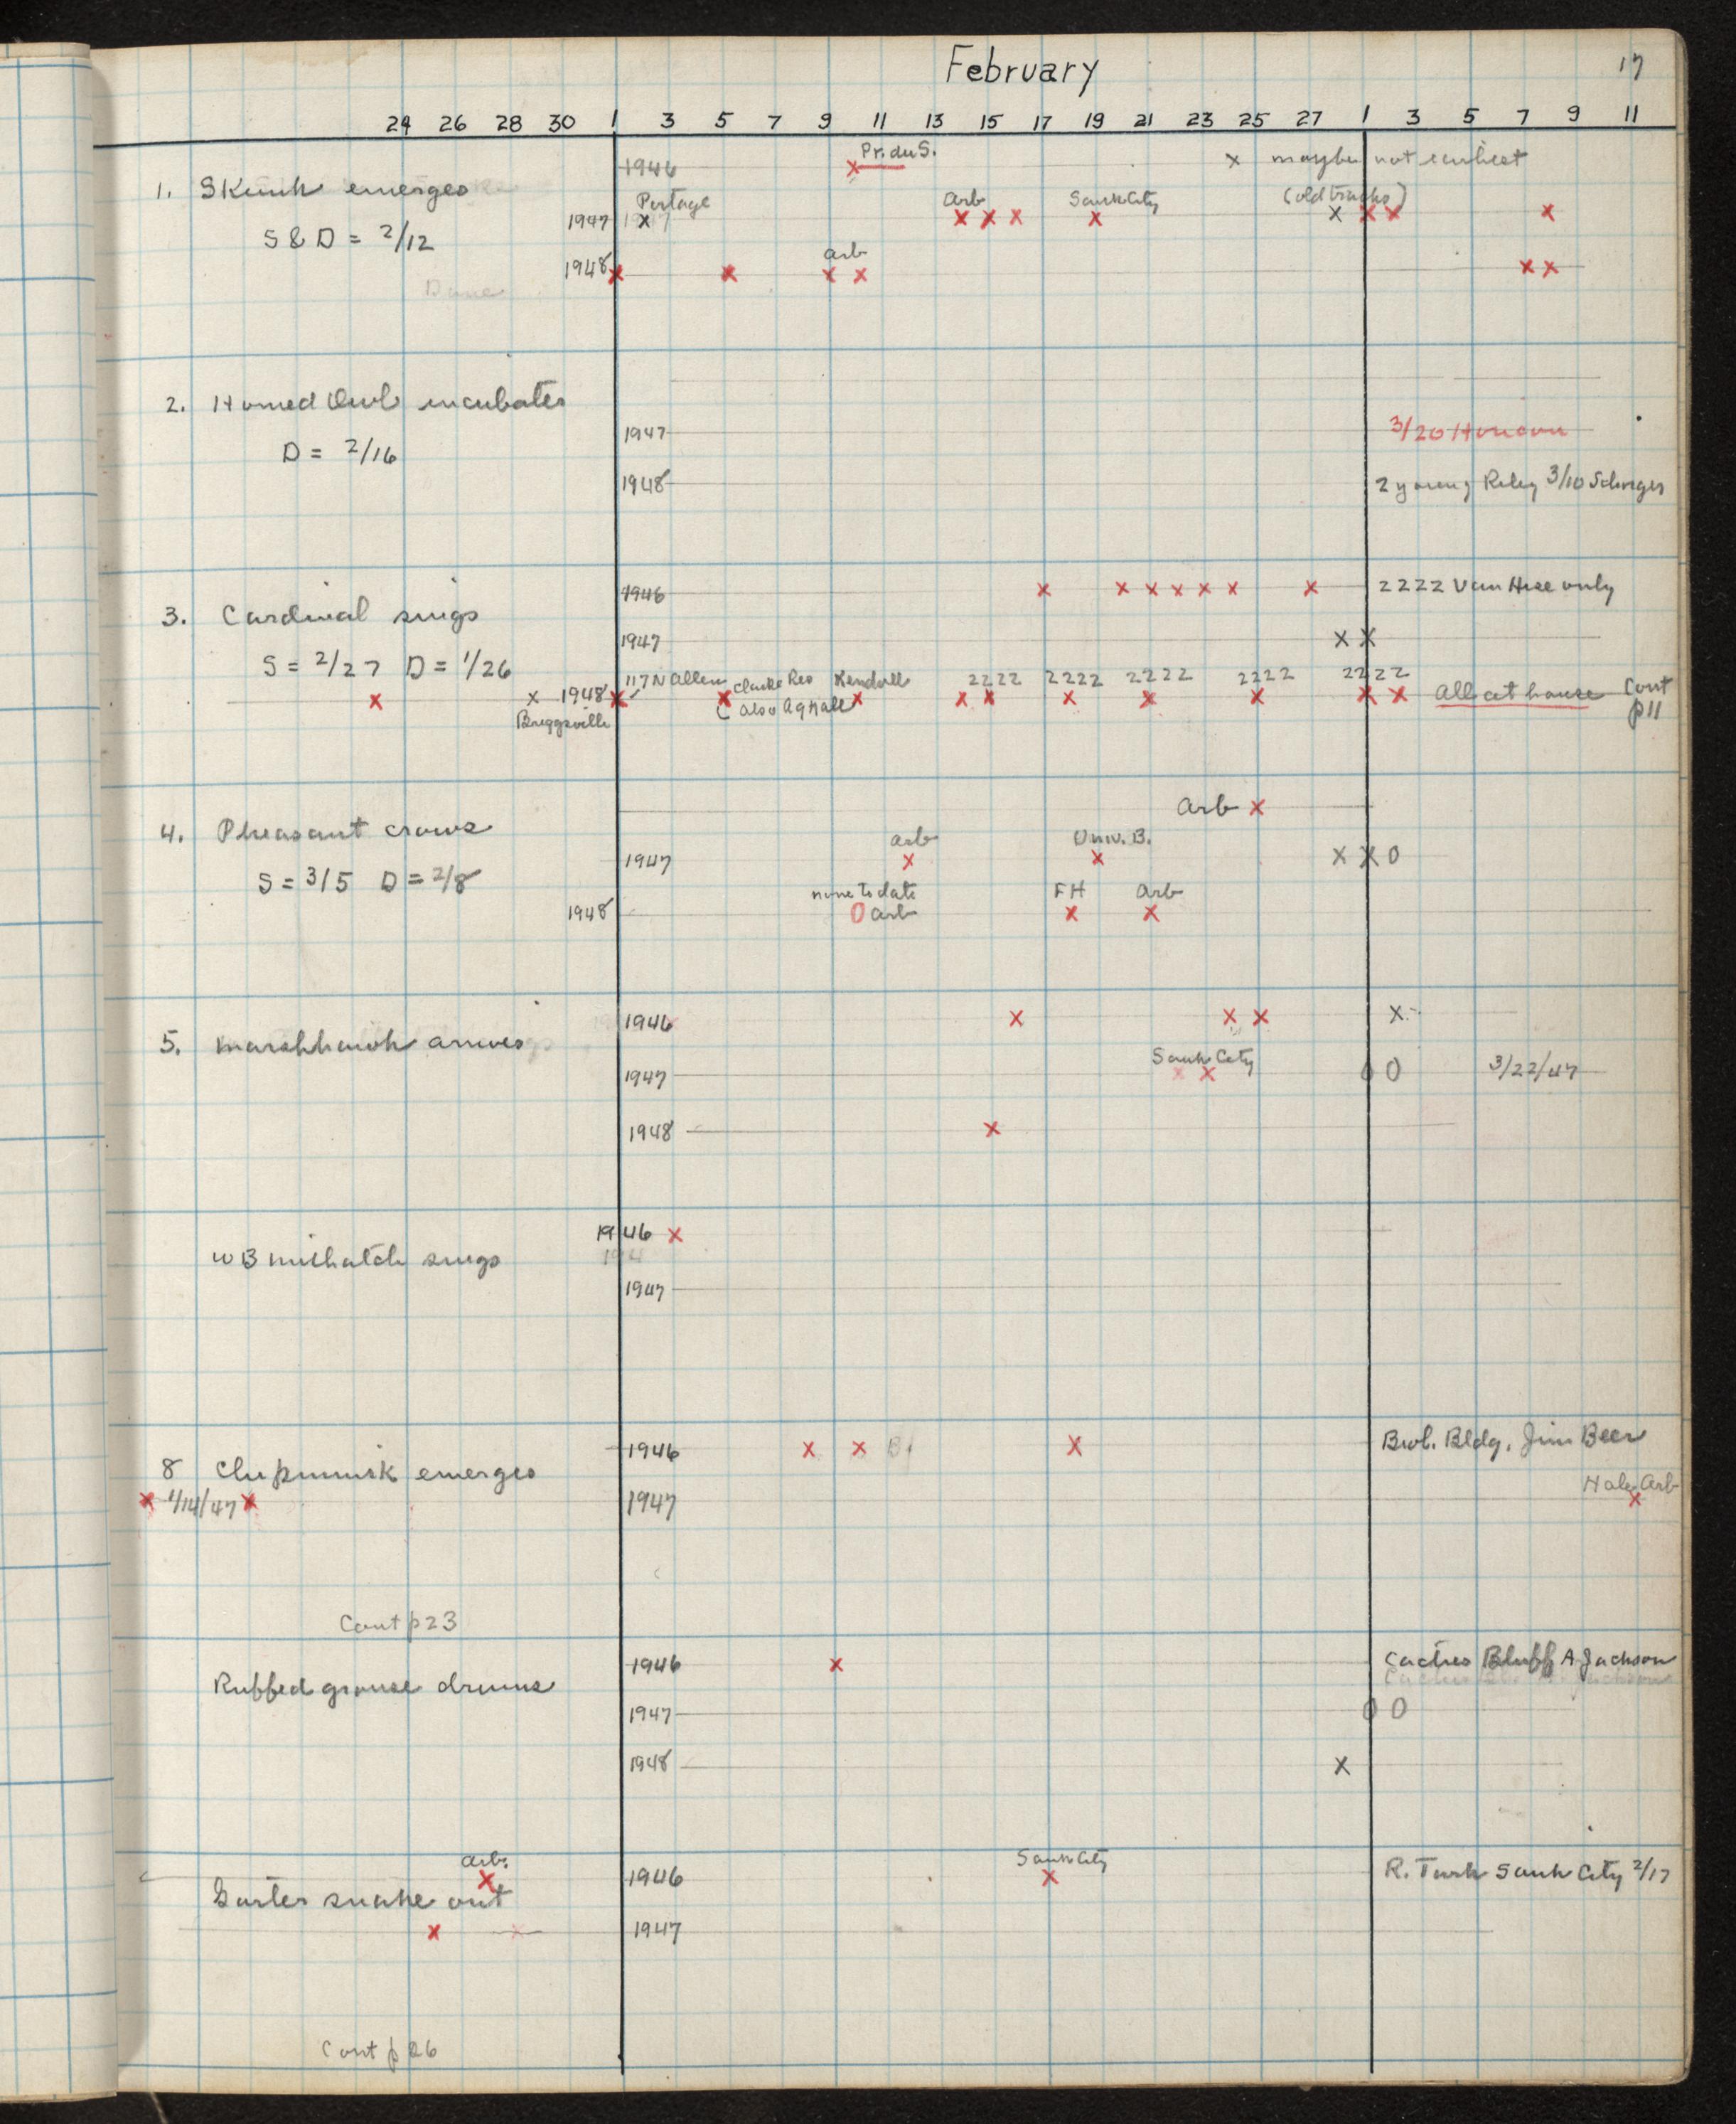 February
17
24 26 28 30 1 3 5 7 9 11 13 15 17 19 21 23 25 27 1 3 5 7 9 11
Pr. du S.
1946 x x maybe not earliest
1. Skunk emerges
Portage Arb Sauk City (old tracks)
1947 x x x x x x x x x
S & D = 2/12
Arb
1948 x x x x x x
Dane
2. Horned Owl incubates
1947 3/20 Horicon
D = 2/16
1948 2 young Riley 3/10
1946 x x x x x x x 2222 Van Hise only
3. Cardinal sings
1947 x x
S = 2/27 D = 1/26
117 N Allen Clarke Res Kendall 2222 2222 2222 2222 2222
x x 1948 x x x x x x x x x x All at house Cont
Briggsville (also Ag Hall p11
Arb x
4. Pheasant crows
Arb Univ. B.
1947 x x x x 0
S = 3/5 D = 2/8
none to date FH Arb
1948 0 Arb x x
1946 x x x x
5. Marshhawk arrives
Sauk City
1947 x x 0 0 3/22/47
1948 x
1946 x
194
WB nuthatch sings
1947
1946 x x B x Biol. Bldg, Jim Beer
8 Chipmunk emerges
Hale Arb
x 1/14/47 x 1947 x
Cont p 23
1946 x Cactus Bluff A. Jackson
Ruffed grouse drums
1947 0 0
1948 x
Arb. Sauk City
x 1946 x R. Turk Sauk City 2/17
Garter snake out
x x 1947
Cont p 26